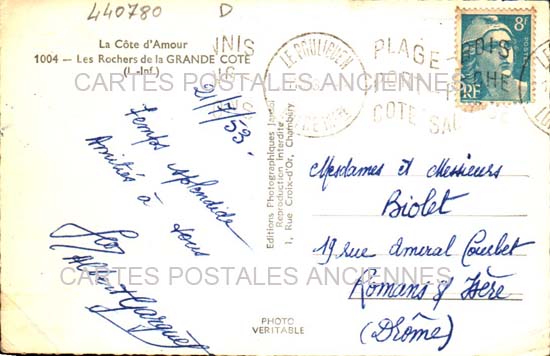 440780
D
La Côte d'Amour
1004 — Les Rochers de la GRANDE COTE
(L.-Inf.)
21/7/53.
Temps splendide
Amitiés à tous
Editions Photographiques
Reproduction Interdite
1, Rue Croix-d'Or, Chambéry
PHOTO
VERITABLE
LE POULIGUEN
PLAGE
COTE
8F
RF
Mesdames et Messieurs
Biolet
19 rue Amiral Courbet
Romans s/ Isère
(Drôme)
CARTES POSTALES ANCIENNES
CARTES POSTALES ANCIENNES